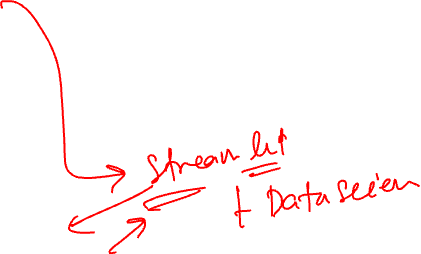 Streamlit
+ Data scien